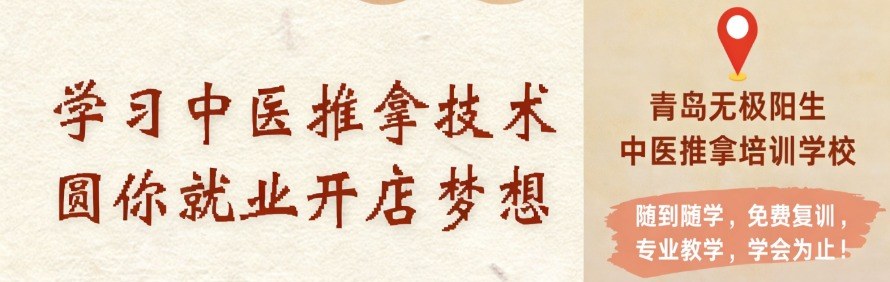 学习中医推拿技术
圆你就业开店梦想
青岛无极阳生
中医推拿培训学校
随到随学，免费复训，
专业教学，学会为止！